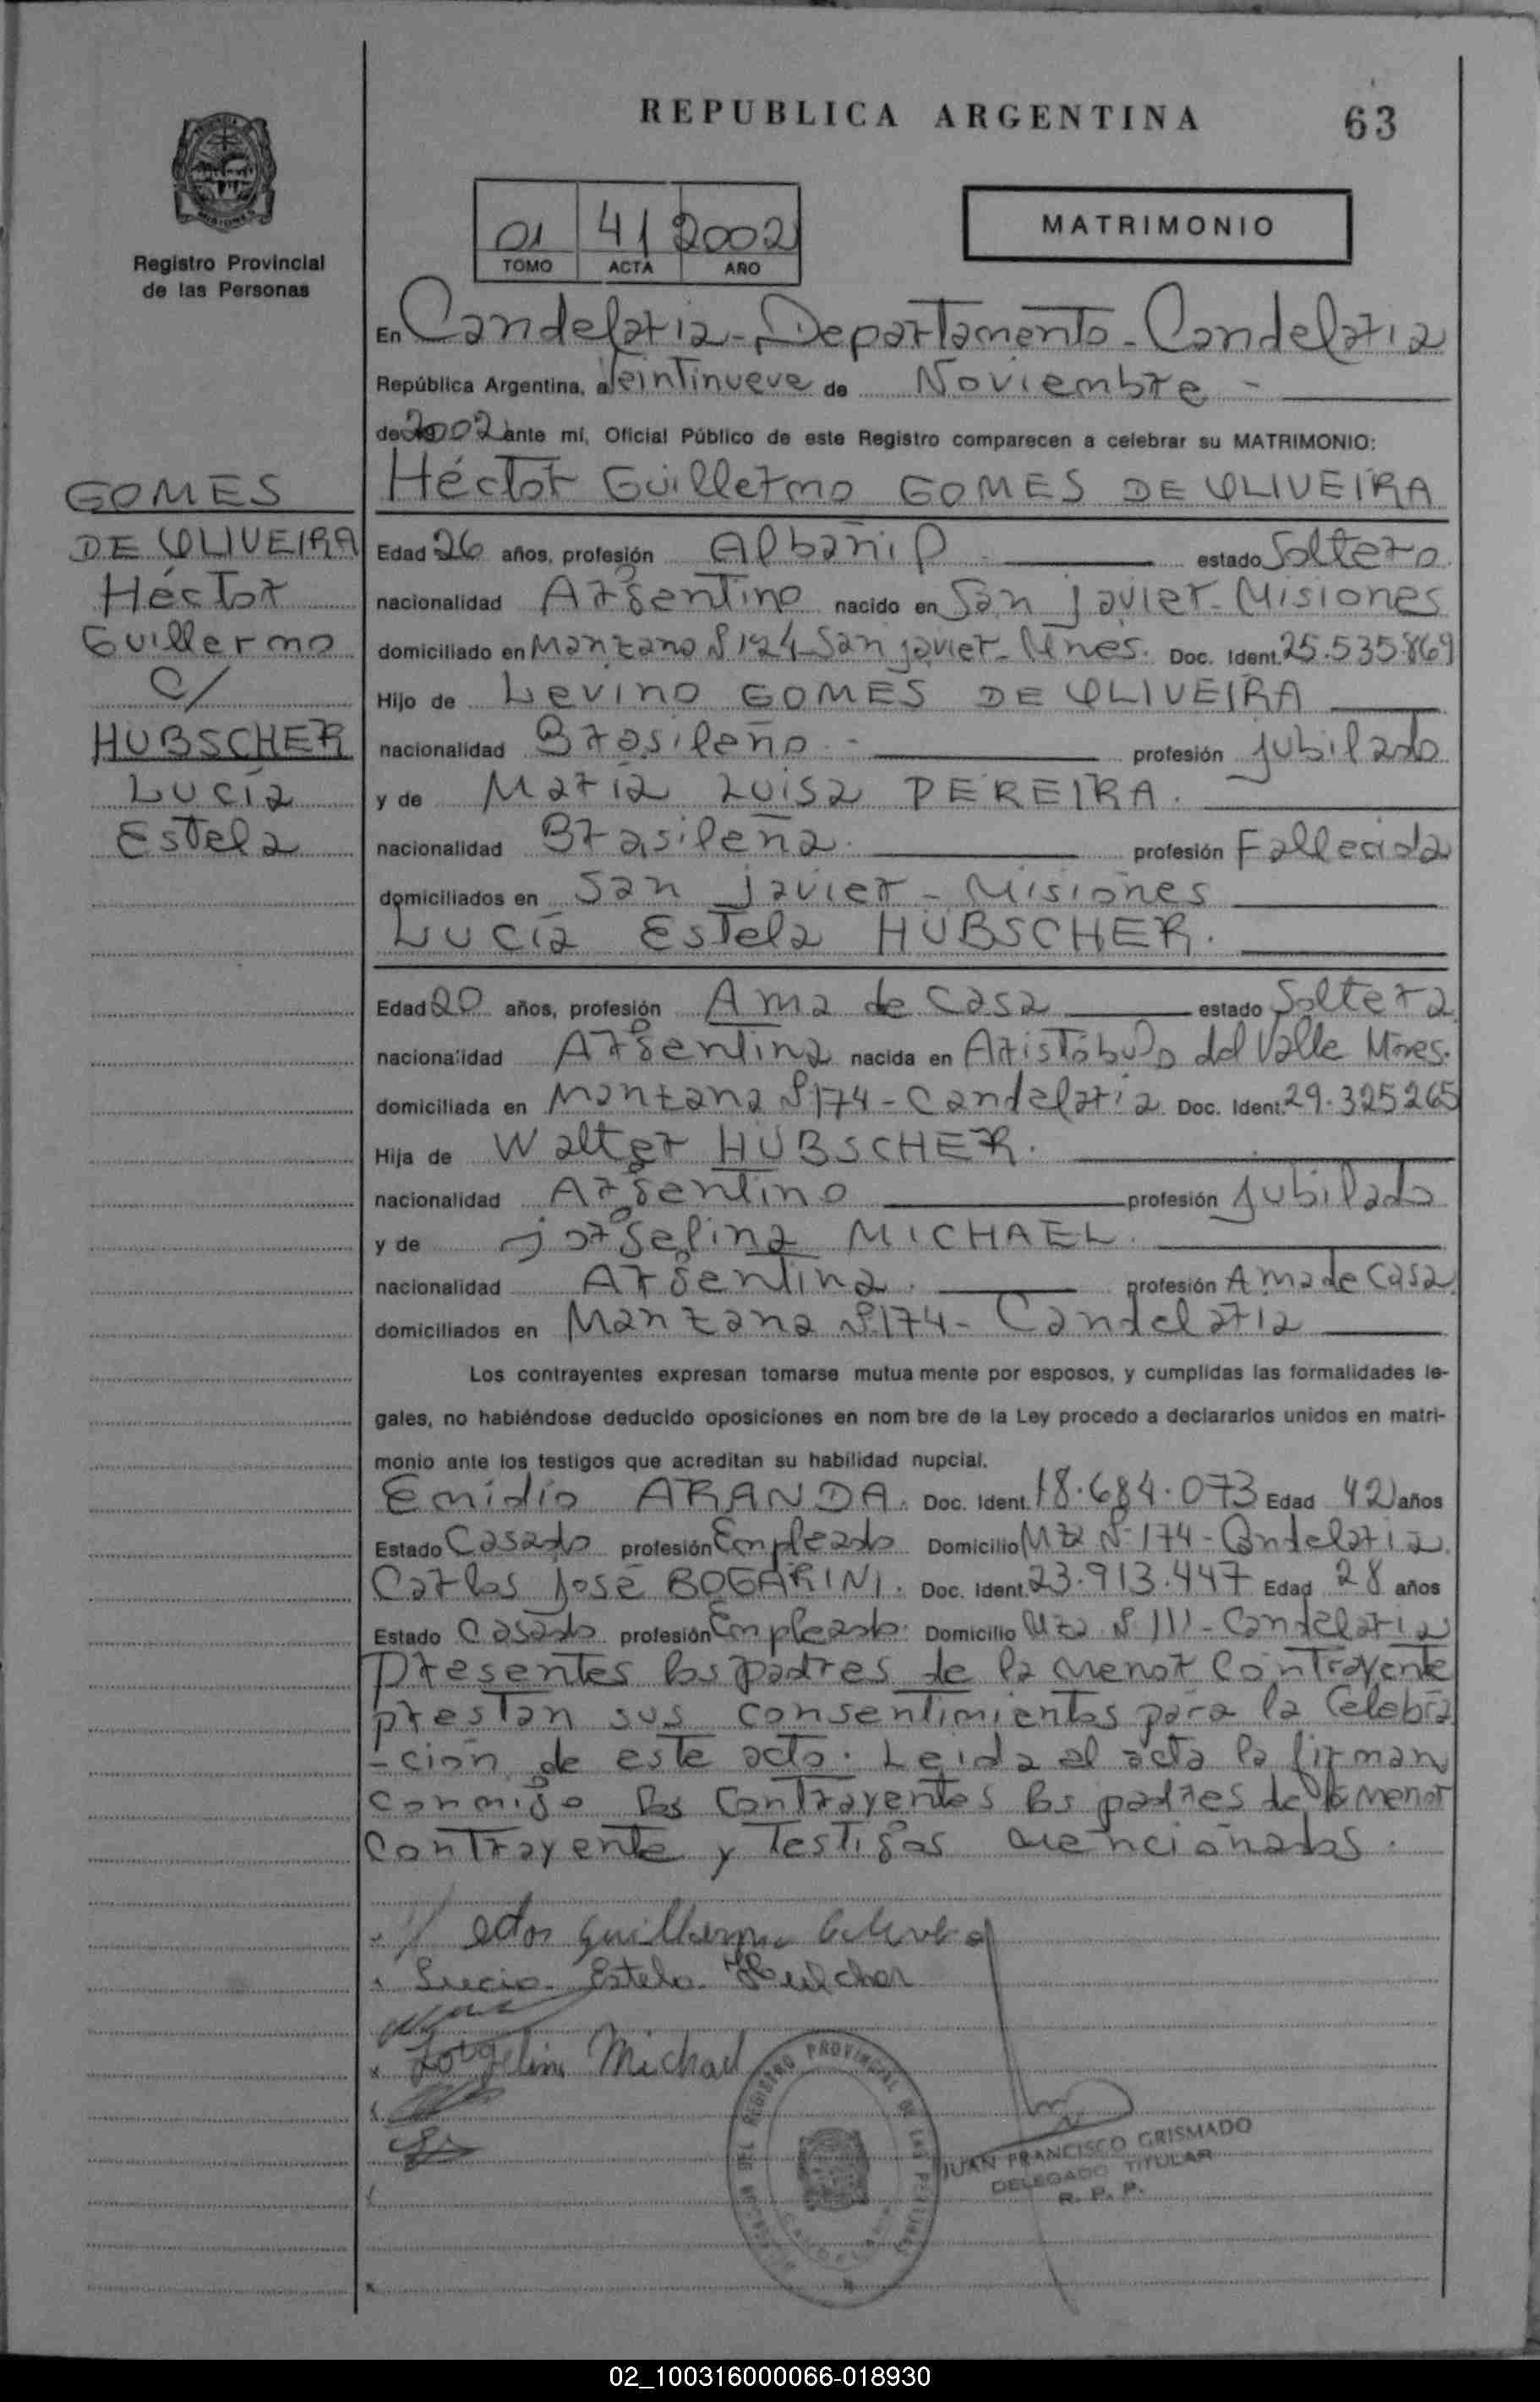 REPUBLICA ARGENTINA
63
01 41 2002
TOMO ACTA AÑO
MATRIMONIO
Registro Provincial
de las Personas
En Candelaria - Departamento - Candelaria
República Argentina, a Veintinueve de Noviembre -
de 2002 ante mí, Oficial Público de este Registro comparecen a celebrar su MATRIMONIO:
Héctor Guillermo GOMES DE OLIVEIRA
GOMES
DE OLIVEIRA
Héctor
Guillermo
C/
HUBSCHER
Lucía
Estela
Edad 26 años, profesión Albañil estado Soltero
nacionalidad Argentino nacido en San Javier - Misiones
domiciliado en Manzana Nº 124 San Javier - Mnes. Doc. Ident. 25.535.869
Hijo de Levino GOMES DE OLIVEIRA
nacionalidad Brasileño - profesión Jubilado
y de María Luisa PEREIRA.
nacionalidad Brasileña. profesión Fallecida
domiciliados en San Javier - Misiones
Lucía Estela HÜBSCHER.
Edad 20 años, profesión Ama de Casa estado Soltera
nacionalidad Argentina nacida en Aristóbulo del Valle Mnes.
domiciliada en Manzana Nº 174 - Candelaria Doc. Ident. 29.325265
Hija de Walter HÜBSCHER.
nacionalidad Argentino profesión Jubilado
y de Jorgelina MICHAEL.
nacionalidad Argentina. profesión Ama de Casa.
domiciliados en Manzana Nº 174 - Candelaria
Los contrayentes expresan tomarse mutua mente por esposos, y cumplidas las formalidades le-
gales, no habiéndose deducido oposiciones en nom bre de la Ley procedo a declararlos unidos en matri-
monio ante los testigos que acreditan su habilidad nupcial.
Emidio ARANDA. Doc. Ident. 18.684.073 Edad 42 años
Estado Casado profesión Empleado Domicilio Mza Nº 174 - Candelaria.
Carlos José BOGARINI. Doc. Ident. 23.913.447 Edad 28 años
Estado Casado profesión Empleado. Domicilio Mza Nº 111 - Candelaria
Presentes los padres de la menor Contrayente
prestan sus consentimientos para la Celebra
-ción de este acto. Leida el acta la firman
conmigo los Contrayentes los padres de la menor
Contrayente y Testigos mencionados.
Lucia Estela
Jorgelina Michael
REGISTRO PROVINCIAL DE LAS PERSONAS
JUAN FRANCISCO GRISMADO
DELEGADO TITULAR
R. P. P.
02_100316000066-018930